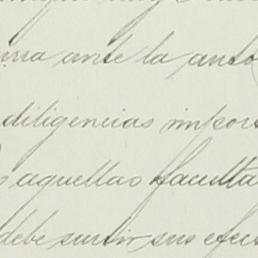 ante la auto
diligencias impor
aquellas faculta
debe surtir sus efec